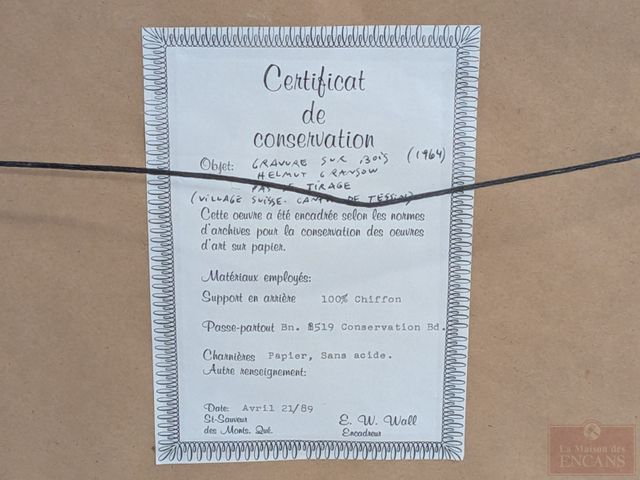 Certificat
de
conservation
Objet: GRAVURE SUR BOIS (1964)
HELMUT GRANSOW
PAS DE TIRAGE
(VILLAGE SUISSE. CANTON DE TESSIN)
Cette oeuvre a été encadrée selon les normes
d'archives pour la conservation des oeuvres
d'art sur papier.
Matériaux employés:
Support en arrière 100% Chiffon
Passe-partout Bn. B519 Conservation Bd.
Charnières Papier, Sans acide.
Autre renseignement:
Date: Avril 21/89
St-Sauveur
des Monts. Qué.
E. W. Wall
Encadreur
La Maison des
ENCANS